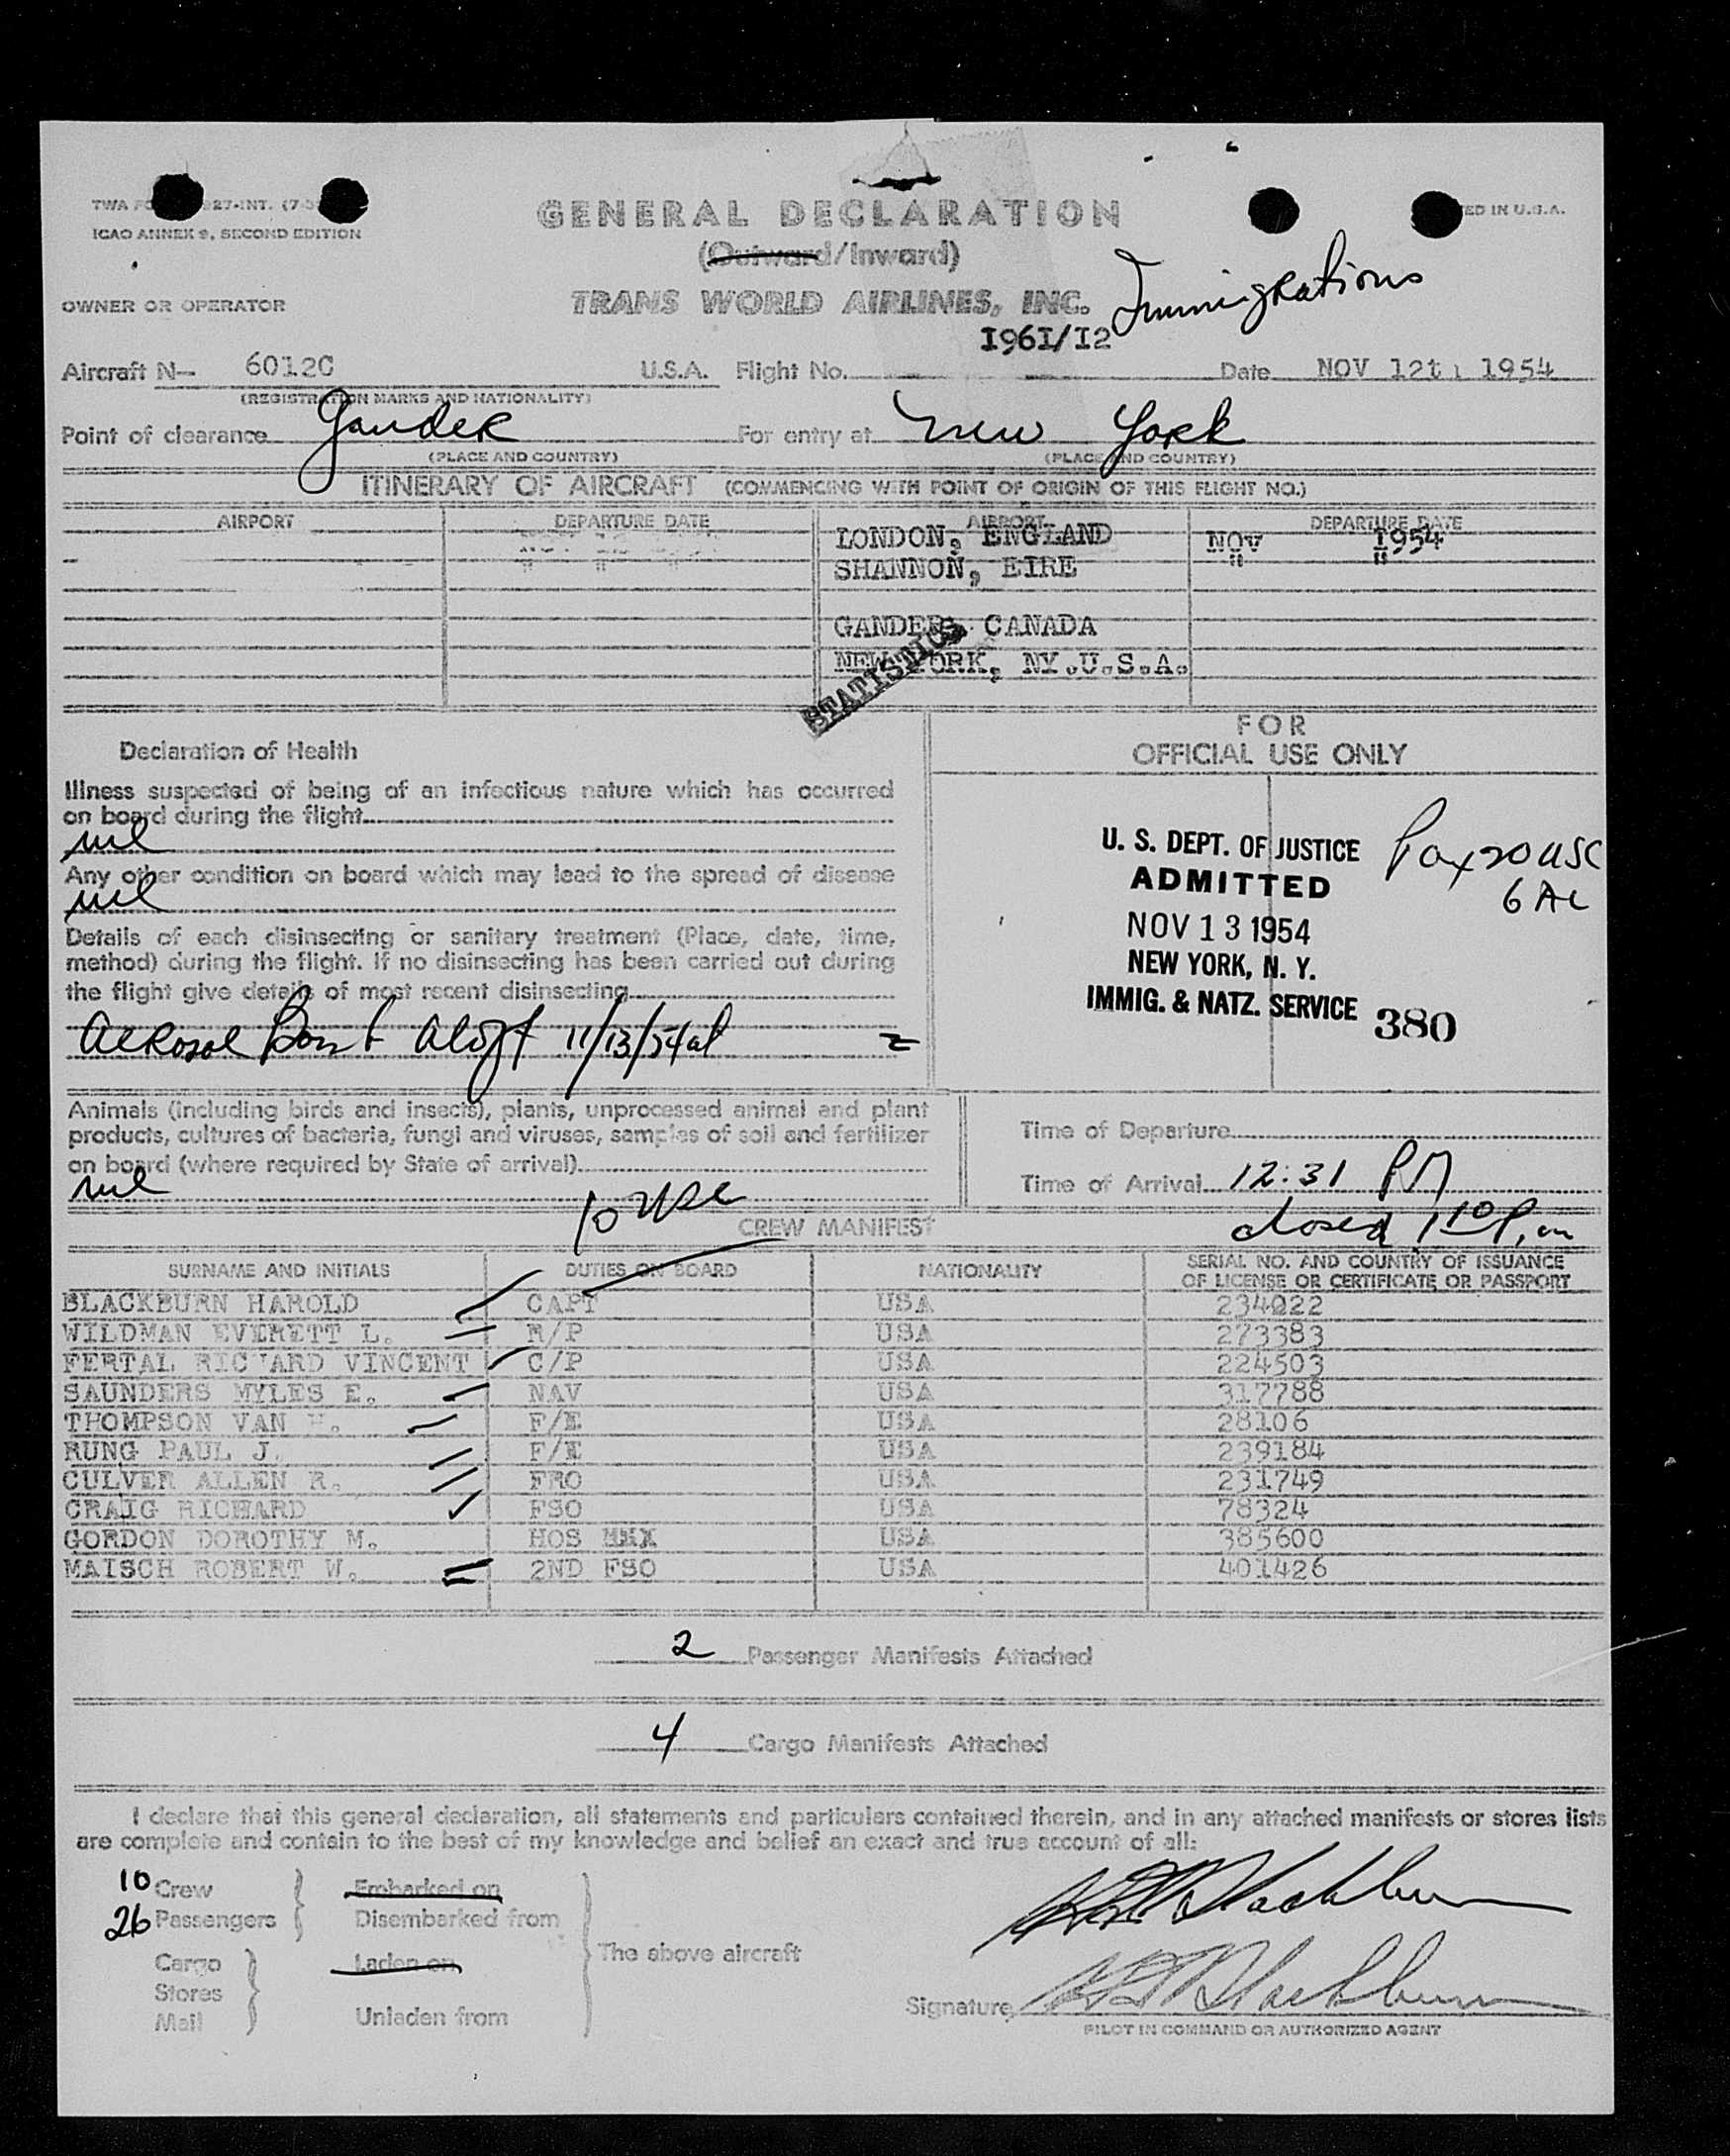 GENERAL DECLARATION
ICAO ANNEX 9, SECOND EDITION
(Outward/Inward)
Immigrations
OWNER OR OPERATOR TRANS WORLD AIRLINES, INC.
I96I/I2
Aircraft N- 6012C U.S.A. Flight No. Date NOV 12t 1954
(REGISTRATION MARKS AND NATIONALITY)
Point of clearance Gander For entry at New York
(PLACE AND COUNTRY) (PLACE AND COUNTRY)
ITINERARY OF AIRCRAFT (COMMENCING WITH POINT OF ORIGIN OF THIS FLIGHT NO.)
AIRPORT DEPARTURE DATE AIRPORT DEPARTURE DATE
LONDON, ENGLAND NOV I954
SHANNON, EIRE " "
GANDER, CANADA
NEW YORK, NY.U.S.A.
STATISTICS
FOR
OFFICIAL USE ONLY
Declaration of Health
Illness suspected of being of an infectious nature which has occurred
on board during the flight
nil
Any other condition on board which may lead to the spread of disease
nil
Details of each disinsecting or sanitary treatment (Place, date, time,
method) during the flight. If no disinsecting has been carried out during
the flight give details of most recent disinsecting
Aerosol Bomb Aloft 11/13/54
U. S. DEPT. OF JUSTICE
ADMITTED
NOV 13 1954
NEW YORK, N. Y.
IMMIG. & NATZ. SERVICE 380
Pax 20 USC
6 AL
Animals (including birds and insects), plants, unprocessed animal and plant
products, cultures of bacteria, fungi and viruses, samples of soil and fertilizer
on board (where required by State of arrival)
nil
Time of Departure
Time of Arrival 12:31 PM
closed 1 10 P.m
10 USC
CREW MANIFEST
SURNAME AND INITIALS DUTIES ON BOARD NATIONALITY SERIAL NO. AND COUNTRY OF ISSUANCE
OF LICENSE OR CERTIFICATE OR PASSPORT
BLACKBURN HAROLD CAPT USA 234022
WILDMAN EVERETT L. R/P USA 273383
FERTAL RICHARD VINCENT C/P USA 224503
SAUNDERS MYLES E. NAV USA 317788
THOMPSON VAN F/E USA 28106
RUNG PAUL J. F/E USA 239184
CULVER ALLEN R. FRO USA 231749
CRAIG RICHARD FSO USA 78324
GORDON DOROTHY M. HOS USA 385600
MAISCH ROBERT W. 2ND FSO USA 401426
2 Passenger Manifests Attached
4 Cargo Manifests Attached
I declare that this general declaration, all statements and particulars contained therein, and in any attached manifests or stores lists
are complete and contain to the best of my knowledge and belief an exact and true account of all:
10 Crew Embarked on
26 Passengers Disembarked from
The above aircraft
Cargo Laden on
Stores
Mail Unladen from
Signature
PILOT IN COMMAND OR AUTHORIZED AGENT